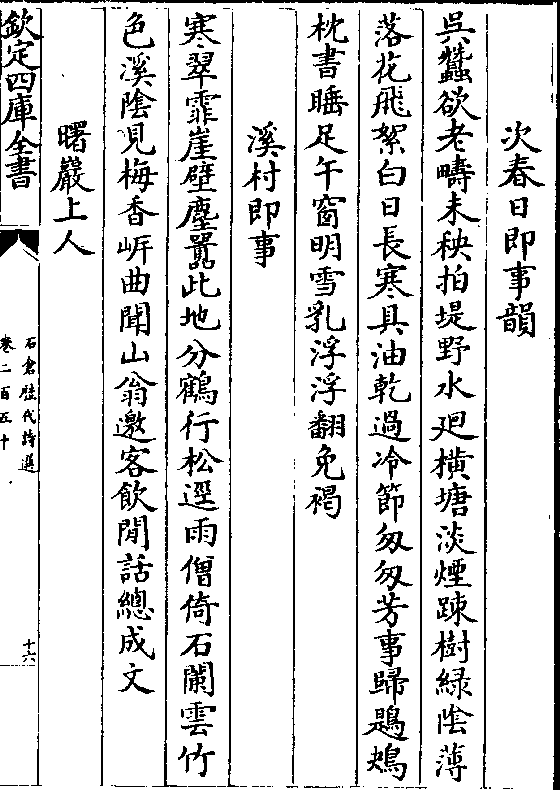 次春日即事韻
吳蠶欲老疇未秧拍堤野水廻橫塘淡煙疎樹綠陰薄
落花飛絮白日長寒具油乾過冷節匆匆芳事歸鶗鴂
枕書睡足午窗明雪乳浮浮翻兔褐
溪村即事
寒翠霏崖壁塵囂此地分鶴行松逕雨僧倚石闌雲竹
色溪陰見梅香岍曲聞山翁邀客飲閒話總成文
曙巖上人
欽定四庫全書
石倉歷代詩選
卷二百五十
十六